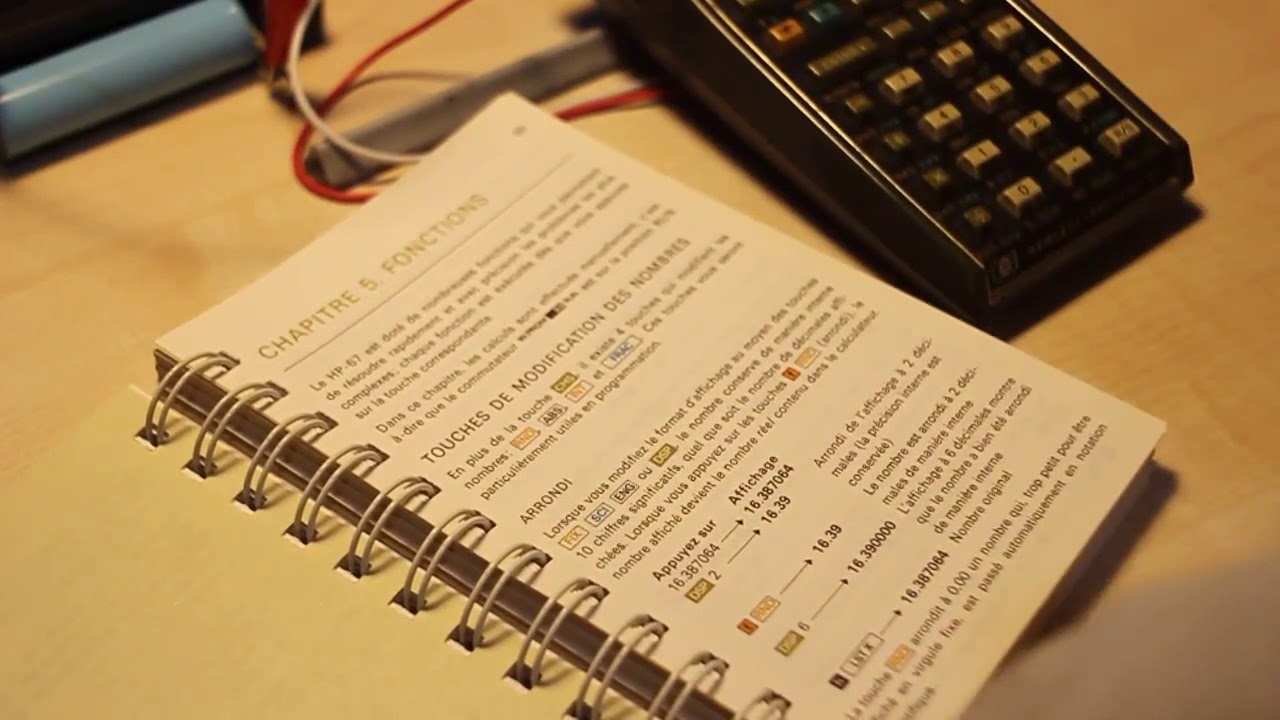 CHAPITRE 5. FONCTIONS
Le HP-67 est doté de nombreuses fonctions qui vous permettent
de résoudre rapidement et avec précision les problèmes les plus
complexes. chaque fonction est exécutée dès que vous appuyez
sur la touche correspondante.
Dans ce chapitre, les calculs sont effectués manuellement, c'est
à-dire que le commutateur est sur la position RUN
TOUCHES DE MODIFICATION DES NOMBRES
En plus de la touche CHS il existe 4 touches qui modifient les
nombres: RND, ABS, INT et FRAC. Ces touches vous seront
particulièrement utiles en programmation.
ARRONDI
Lorsque vous modifiez le format d'affichage au moyen des touches
FIX SCI ENG ou DSP, le nombre conserve de manière interne
10 chiffres significatifs, quel que soit le nombre de décimales affi-
chées. Lorsque vous appuyez sur les touches f RND (arrondi), le
nombre affiché devient le nombre réel contenu dans le calculateur.
Appuyez sur Affichage
16.387064 → 16.387064
DSP 2 → 16.39 Arrondi de l'affichage à 2 déci-
males (la précision interne est
conservée)
f RND → 16.39 Le nombre est arrondi à 2 déci-
males de manière interne
DSP 6 → 16.390000 L'affichage à 6 décimales montre
que le nombre a bien été arrondi
de manière interne
h LST X → 16.387064 Nombre original
La touche RND arrondit à 0,00 un nombre qui, trop petit pour être
affiché en virgule fixe, est passé automatiquement en notation
7
4 5 6
1 2 3
0 . R/S
hp